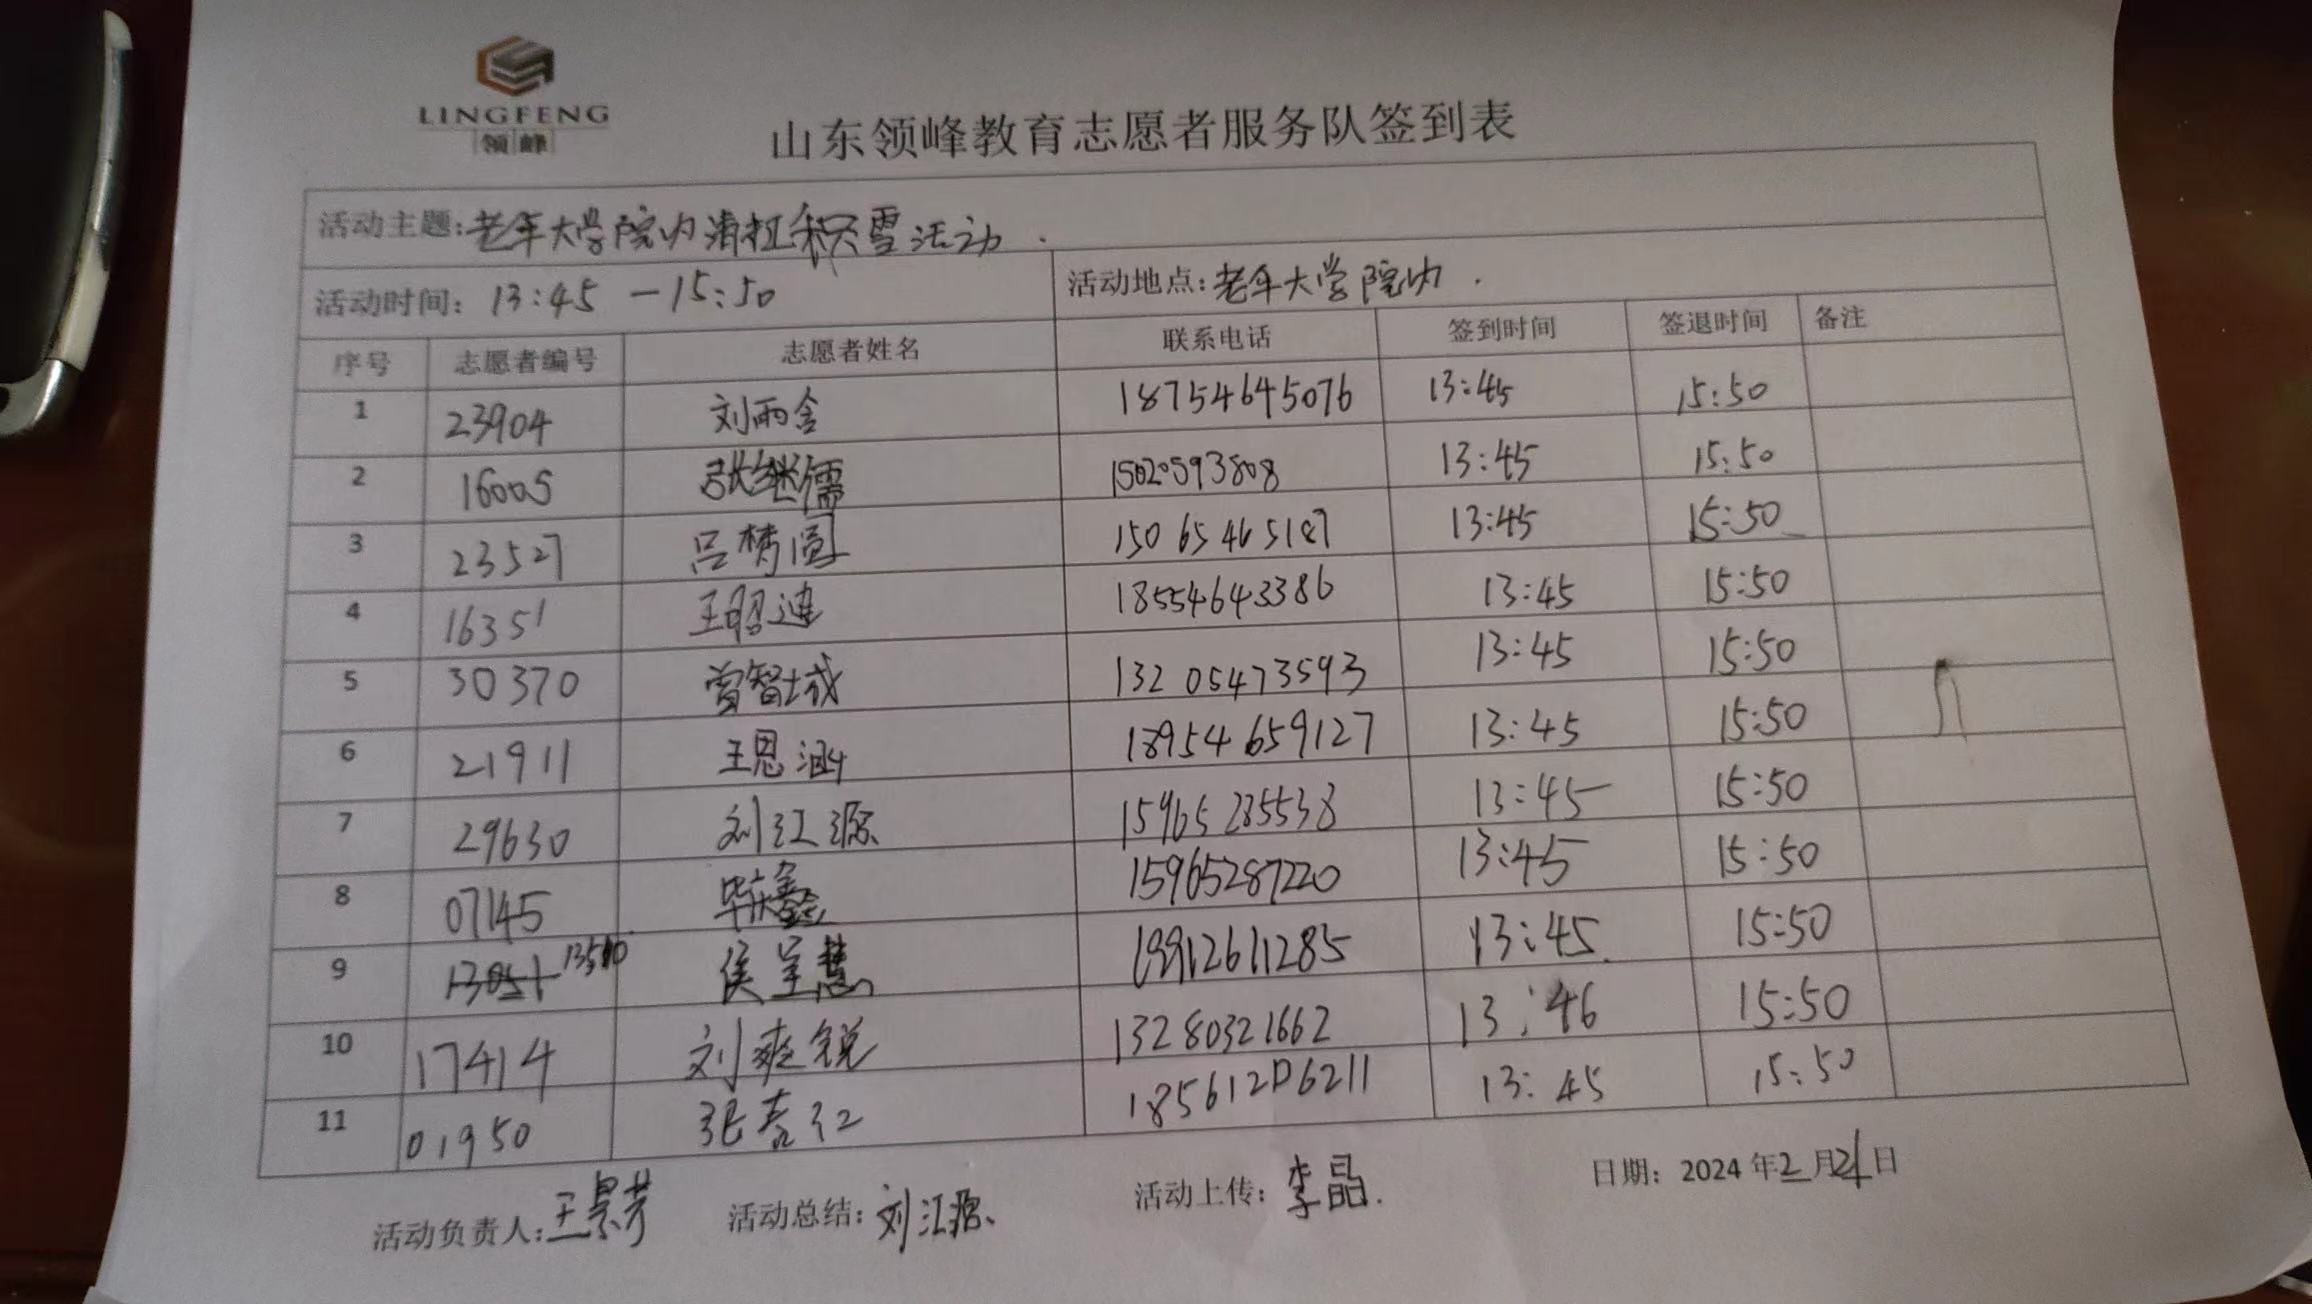 LINGFENG
领峰
山东领峰教育志愿者服务队签到表
活动主题:老年大学院内清扫积雪活动.
活动时间: 13:45 -15:50 活动地点:老年大学院内.
序号 志愿者编号 志愿者姓名 联系电话 签到时间 签退时间 备注
1 23904 刘雨含 18754645076 13:45 15:50
2 16005 张继儒 15020593808 13:45 15:50
3 23527 吕梦圆 15065465187 13:45 15:50
4 16351 王昭迪 18554643386 13:45 15:50
5 30370 曾智城 13205473593 13:45 15:50
6 21911 王思涵 18954659127 13:45 15:50
7 29630 刘江源 15965285538 13:45 15:50
8 07145 毕鑫 15965287220 13:45 15:50
9 13051 13510 侯呈慧 19912611285 13:45 15:50
10 17414 刘爽锐 13280321662 13:46 15:50
11 01950 张春红 18561206211 13:45 15:50
活动负责人:王景芳 活动总结:刘江源 活动上传:李晶. 日期: 2024年2月21日